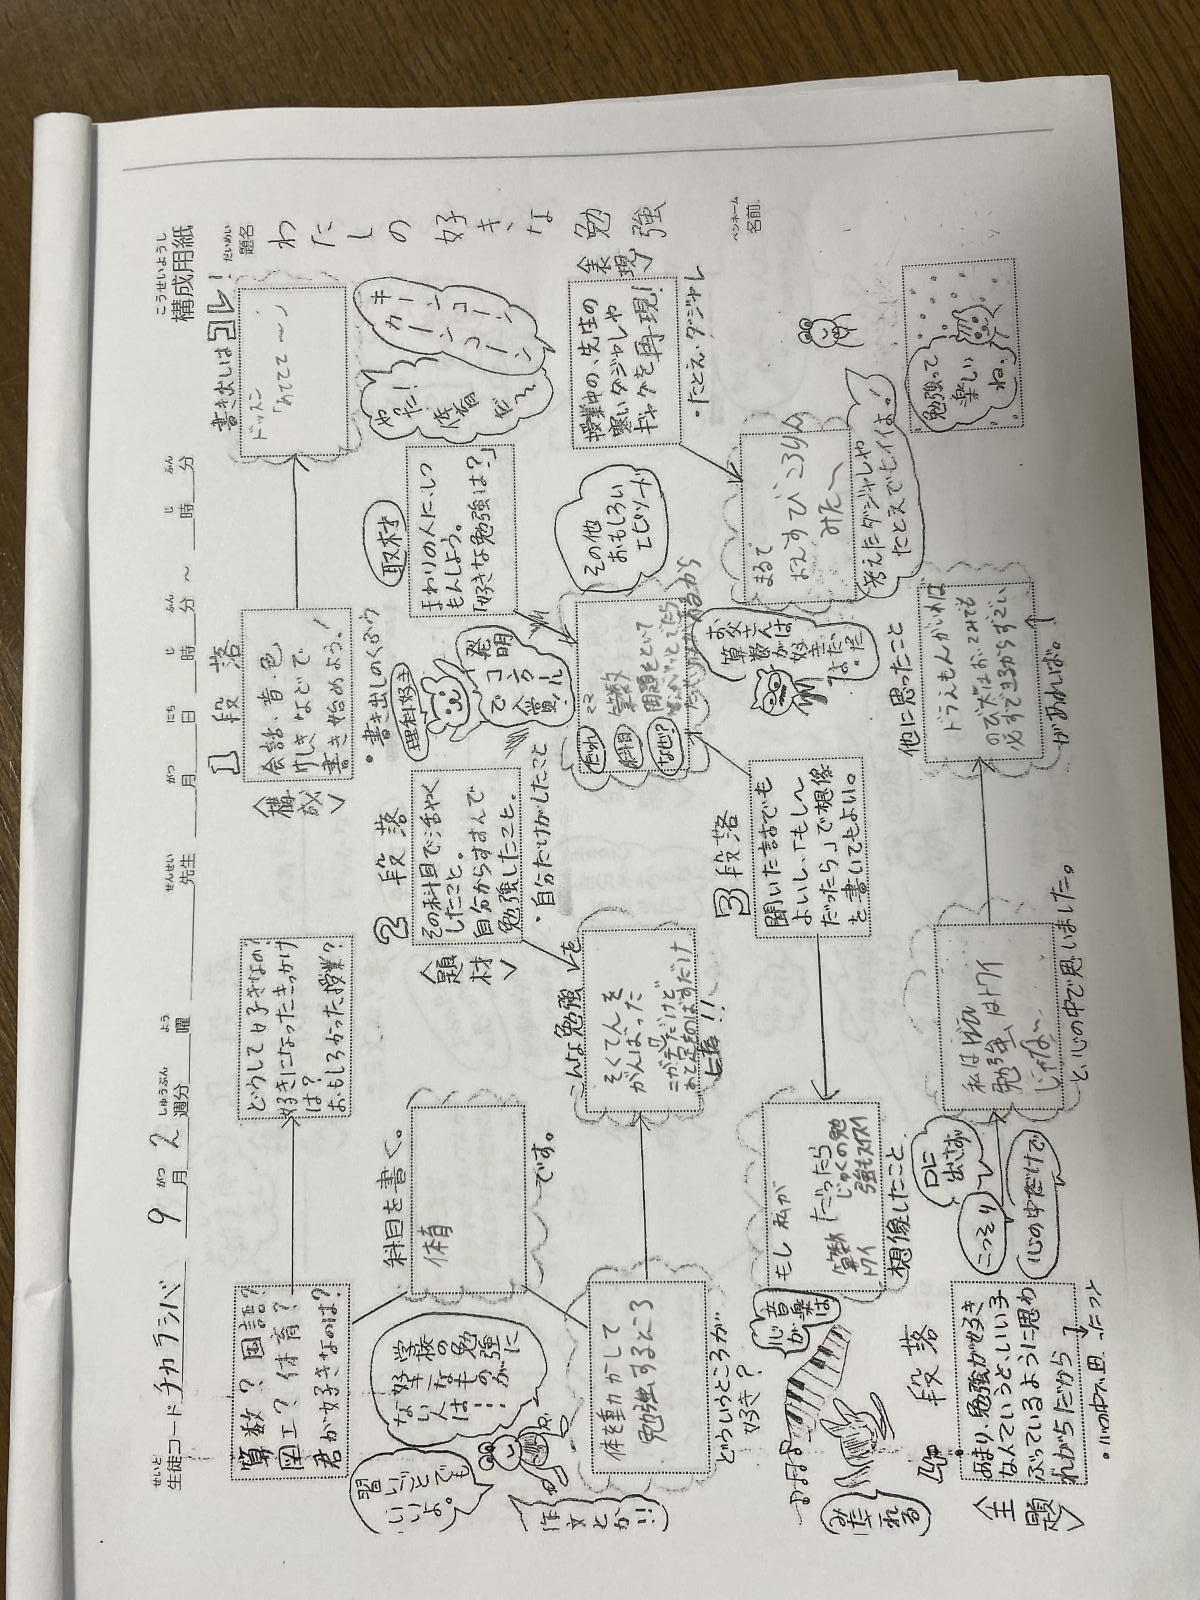 構成用紙
こうせいようし
生徒コード チカラシバ 9月2週分 曜 先生 月 日 時 分 ～ 時 分
せいと がつ しゅうぶん よう せんせい がつ にち じ ふん じ ふん
題名
だいめい
わたしの好きな勉強
ペンネーム
名前
1段落
＜構成＞
会話・音・色
けしきなどで
書き始めよう！
・書き出しのくふう
書き出しはコレ！
ドッスン
「あててて～」
算数？国語？
図工？体育？
君が好きなのは？
どうして好きなの？
好きになったきっかけ
は？
おもしろかった授業？
キーンコーン
カーンコーン
やった！
体育
だ～
習いごとでも
いいよ。
学校の勉強に
好きなものが
ない人は…
作文とか！！
科目を書く。
体育
です。
体を動かして
勉強するところ
どういうところが
好き？
2段落
＜題材＞
その科目で活やく
したこと。
自分からすすんで
勉強したこと。
・自分だけがしたこと
こんな勉強を
そくてんを
がんばった
上達！！
理科好き
発明
コンクール
で入賞！
取材
まわりの人にしつ
もんしよう。
「好きな勉強は？」
だれ
科目 算数
なぜ？
問題をといて
から
その他
おもしろい
エピソード
お父さんは
算数が
好き
だ。
＜表現＞
授業中の、先生の
寒いダジャレや
ギャグを再現！
・たとえ・ダジャレ
まるで
おむすびころりん
みた～
考えたダジャレや
たとえでもイイよ。
3段落
聞いた話でも
よいし、「もし～
だったら」で想像
を書いてもよい。
もし私が
算数 だったら
じゅくの勉
強もスイスイ
想像したこと
心は
音楽
が
みだれる
4段落
＜主題＞
あまり、勉強が好き
なんていうと、いい子
ぶっているように思わ
れがちだから↓
・心の中で思ったこと
口に
出さず
こっそり
心の中だけで
私は
勉強は
じゃね…
と、心の中で思いました。
他に思ったこと
ドラえもんがいれば
のび太はおいてみても
必ずできるからすごい
があれば。
勉強って
楽しい
ね。